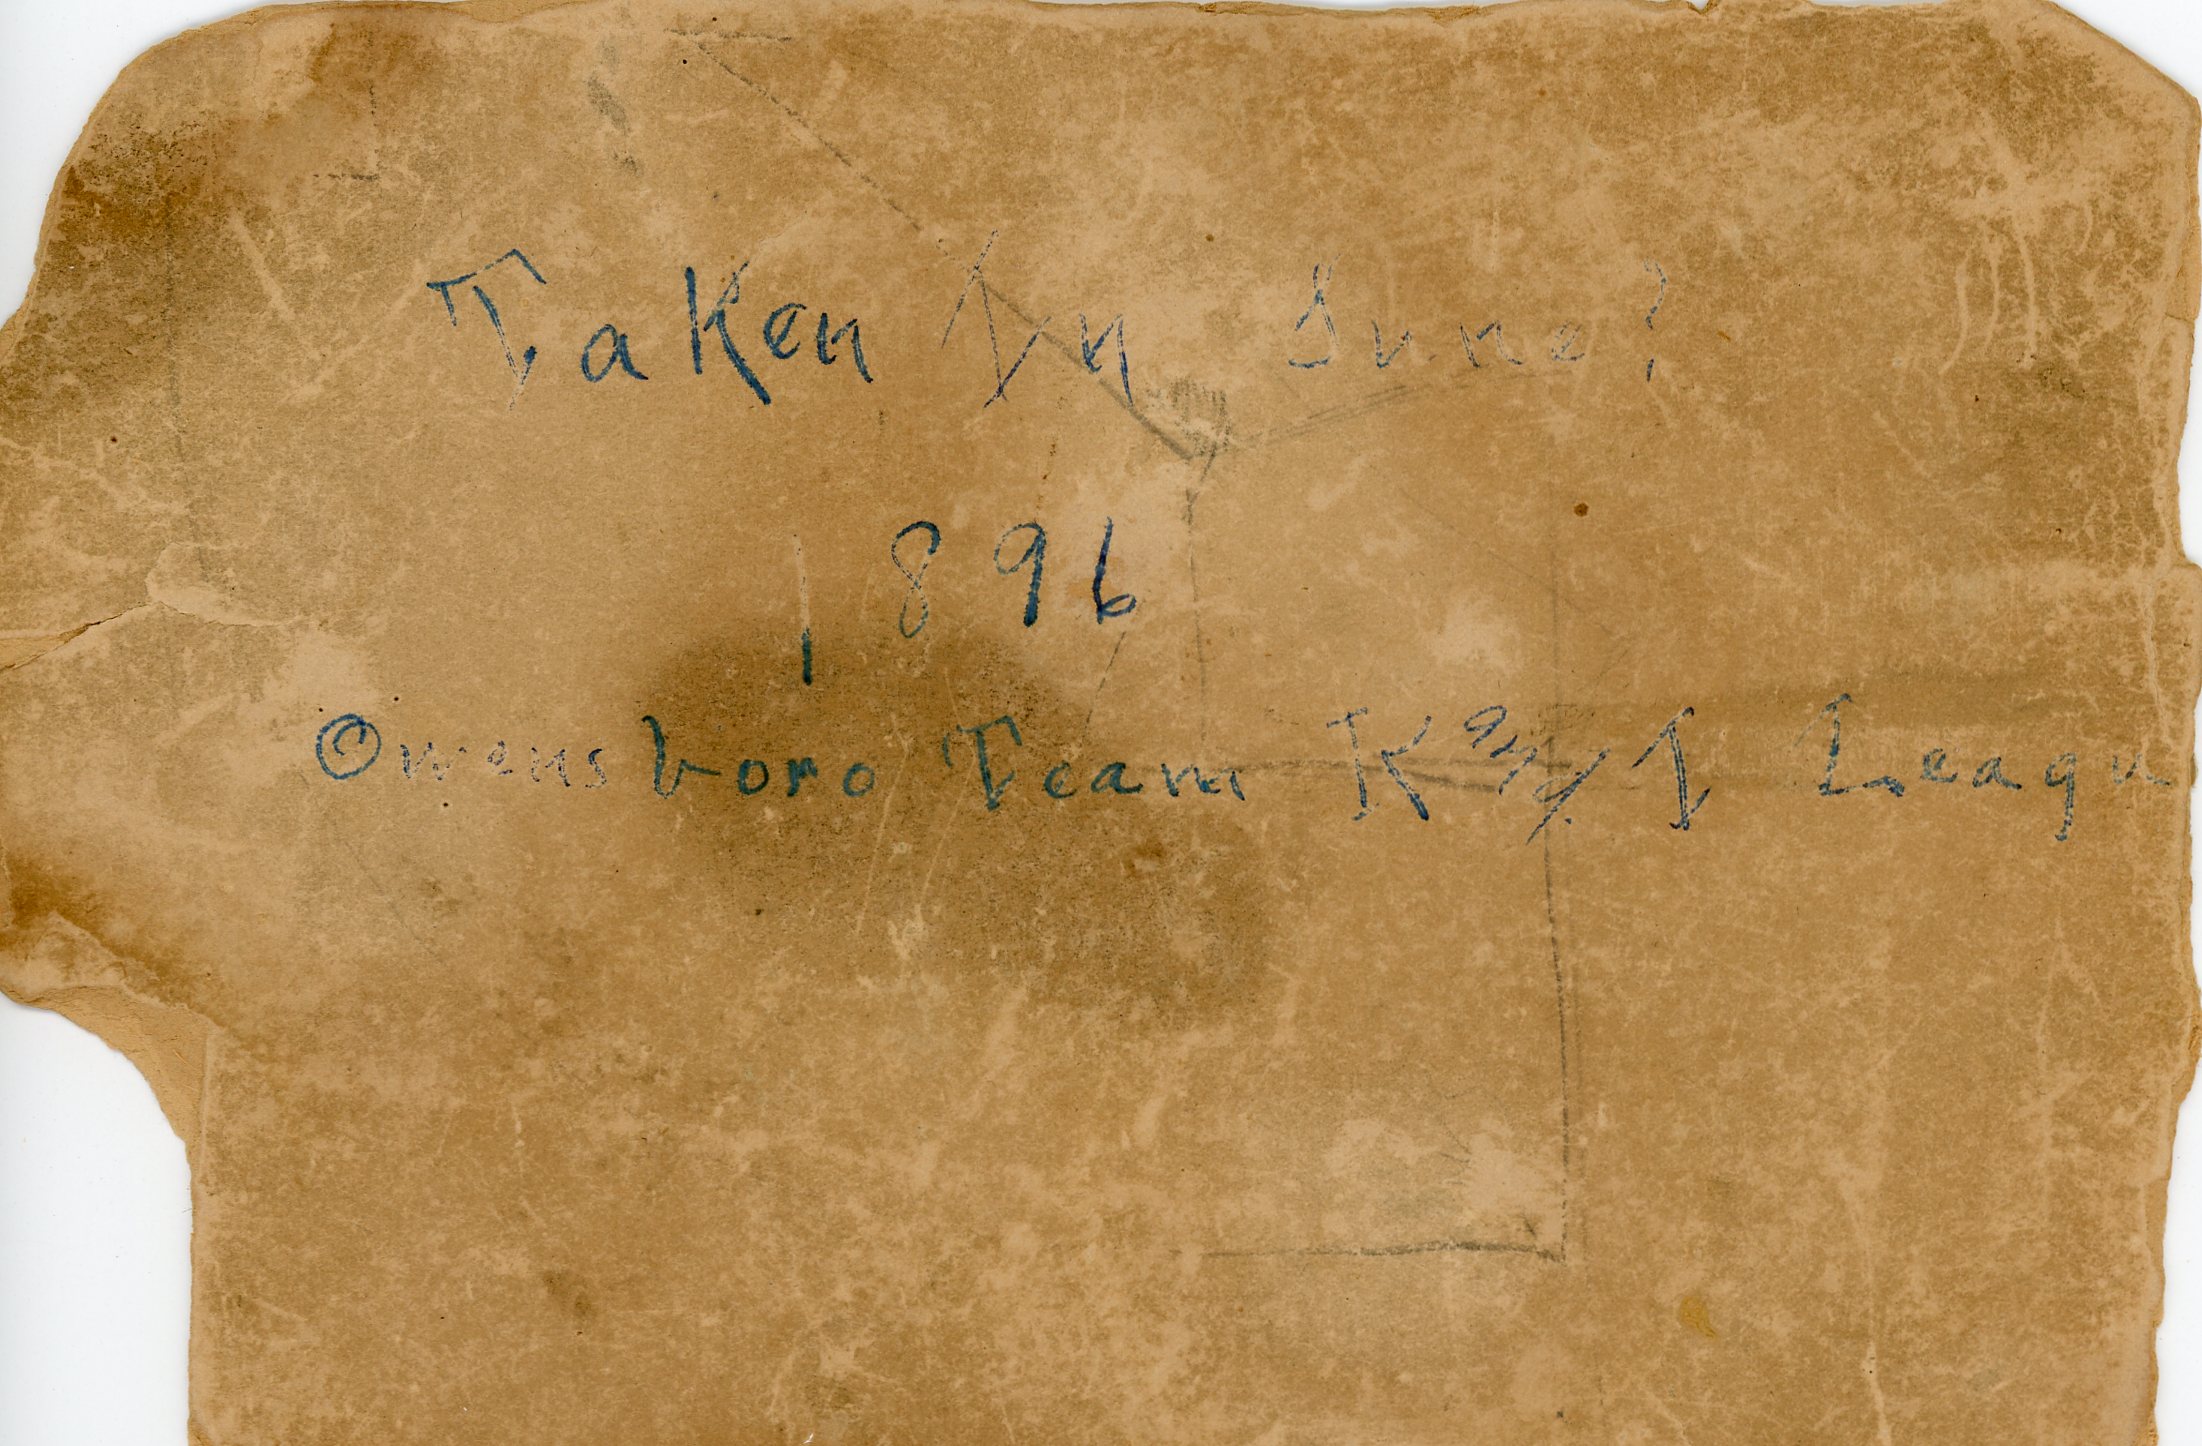 Taken In June?
1896
Owensboro Team K and I Leagu